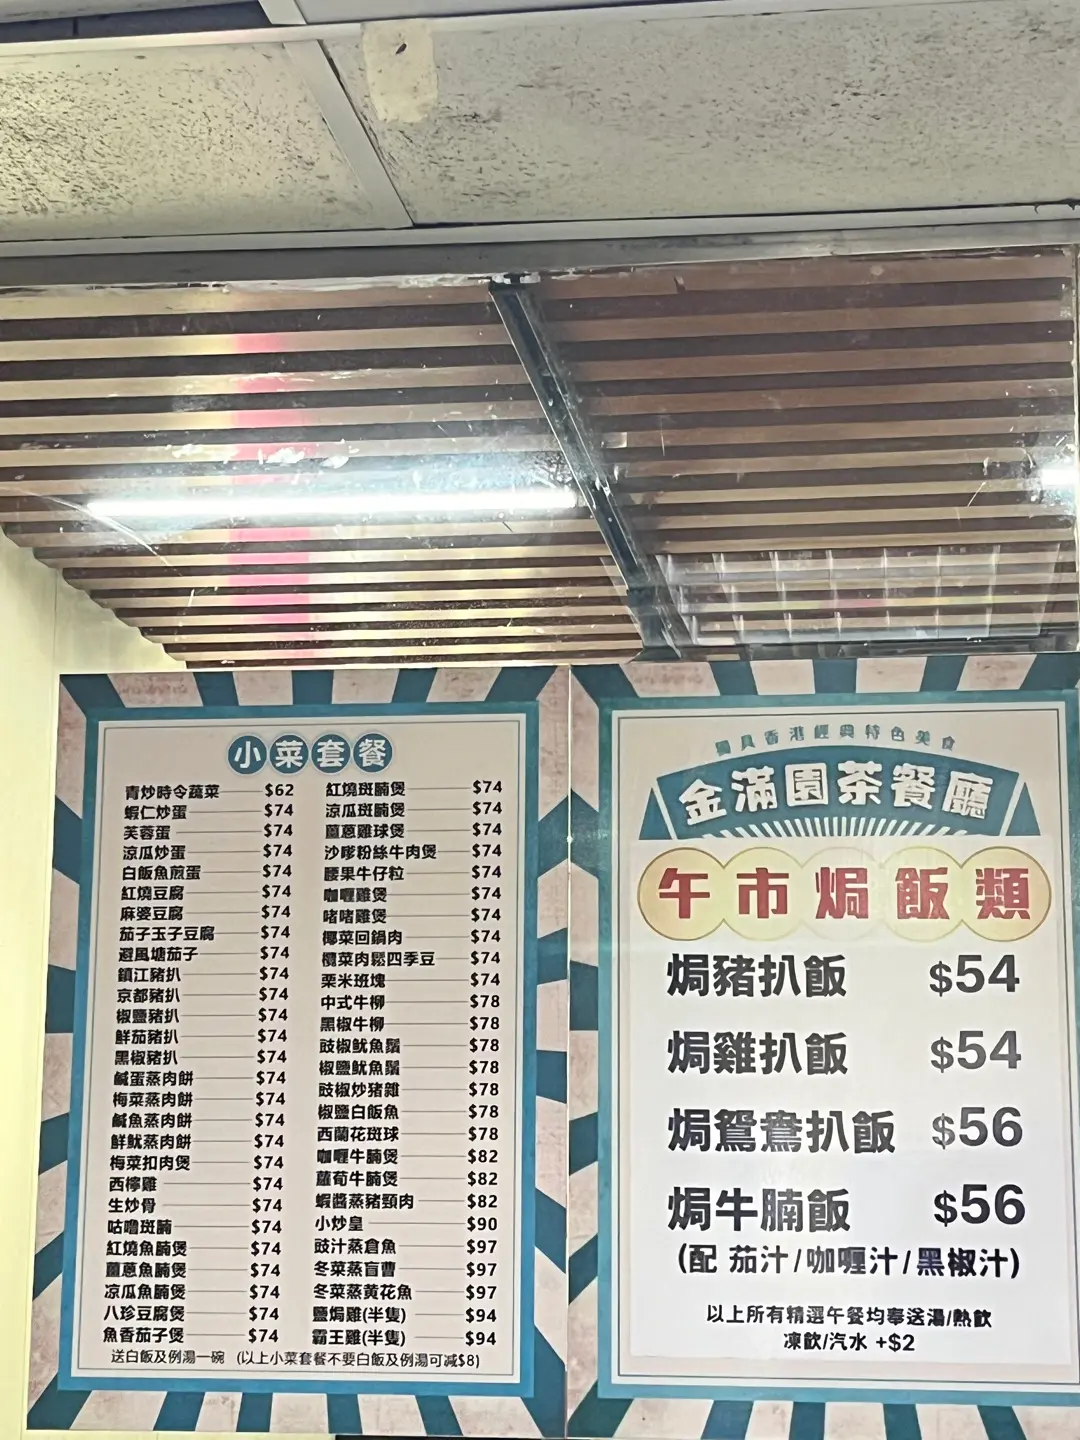 小菜套餐
青炒時令蔬菜 $62
蝦仁炒蛋 $74
芙蓉蛋 $74
涼瓜炒蛋 $74
白飯魚煎蛋 $74
紅燒豆腐 $74
麻婆豆腐 $74
茄子玉子豆腐 $74
避風塘茄子 $74
鎮江豬扒 $74
京都豬扒 $74
椒鹽豬扒 $74
鮮茄豬扒 $74
黑椒豬扒 $74
鹹蛋蒸肉餅 $74
梅菜蒸肉餅 $74
鹹魚蒸肉餅 $74
鮮魷蒸肉餅 $74
梅菜扣肉煲 $74
西檸雞 $74
生炒骨 $74
咕嚕斑腩 $74
紅燒魚腩煲 $74
薑蔥魚腩煲 $74
凉瓜魚腩煲 $74
八珍豆腐煲 $74
魚香茄子煲 $74
紅燒斑腩煲 $74
涼瓜斑腩煲 $74
薑蔥雞球煲 $74
沙嗲粉絲牛肉煲 $74
腰果牛仔粒 $74
咖喱雞煲 $74
啫啫雞煲 $74
椰菜回鍋肉 $74
欖菜肉鬆四季豆 $74
栗米班塊 $74
中式牛柳 $78
黑椒牛柳 $78
豉椒魷魚鬚 $78
椒鹽魷魚鬚 $78
豉椒炒豬雜 $78
椒鹽白飯魚 $78
西蘭花斑球 $78
咖喱牛腩煲 $82
蘿蔔牛腩煲 $82
蝦醬蒸豬頸肉 $82
小炒皇 $90
豉汁蒸倉魚 $97
冬菜蒸盲曹 $97
冬菜蒸黄花魚 $97
鹽焗雞(半隻) $94
霸王雞(半隻) $94
送白飯及例湯一碗 (以上小菜套餐不要白飯及例湯可減$8)
獨具香港經典特色美食
金滿園茶餐廳
午市焗飯類
焗豬扒飯 $54
焗雞扒飯 $54
焗鴛鴦扒飯 $56
焗牛腩飯 $56
(配 茄汁/咖喱汁/黑椒汁)
以上所有精選午餐均奉送湯/熱飲
凍飲/汽水 +$2